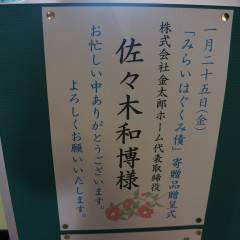 一月二十五日(金)
「みらいはぐくみ債」寄贈品贈呈式
株式会社金太郎ホーム代表取締役
佐々木和博様
お忙しい中ありがとうございます。
よろしくお願いいたします。